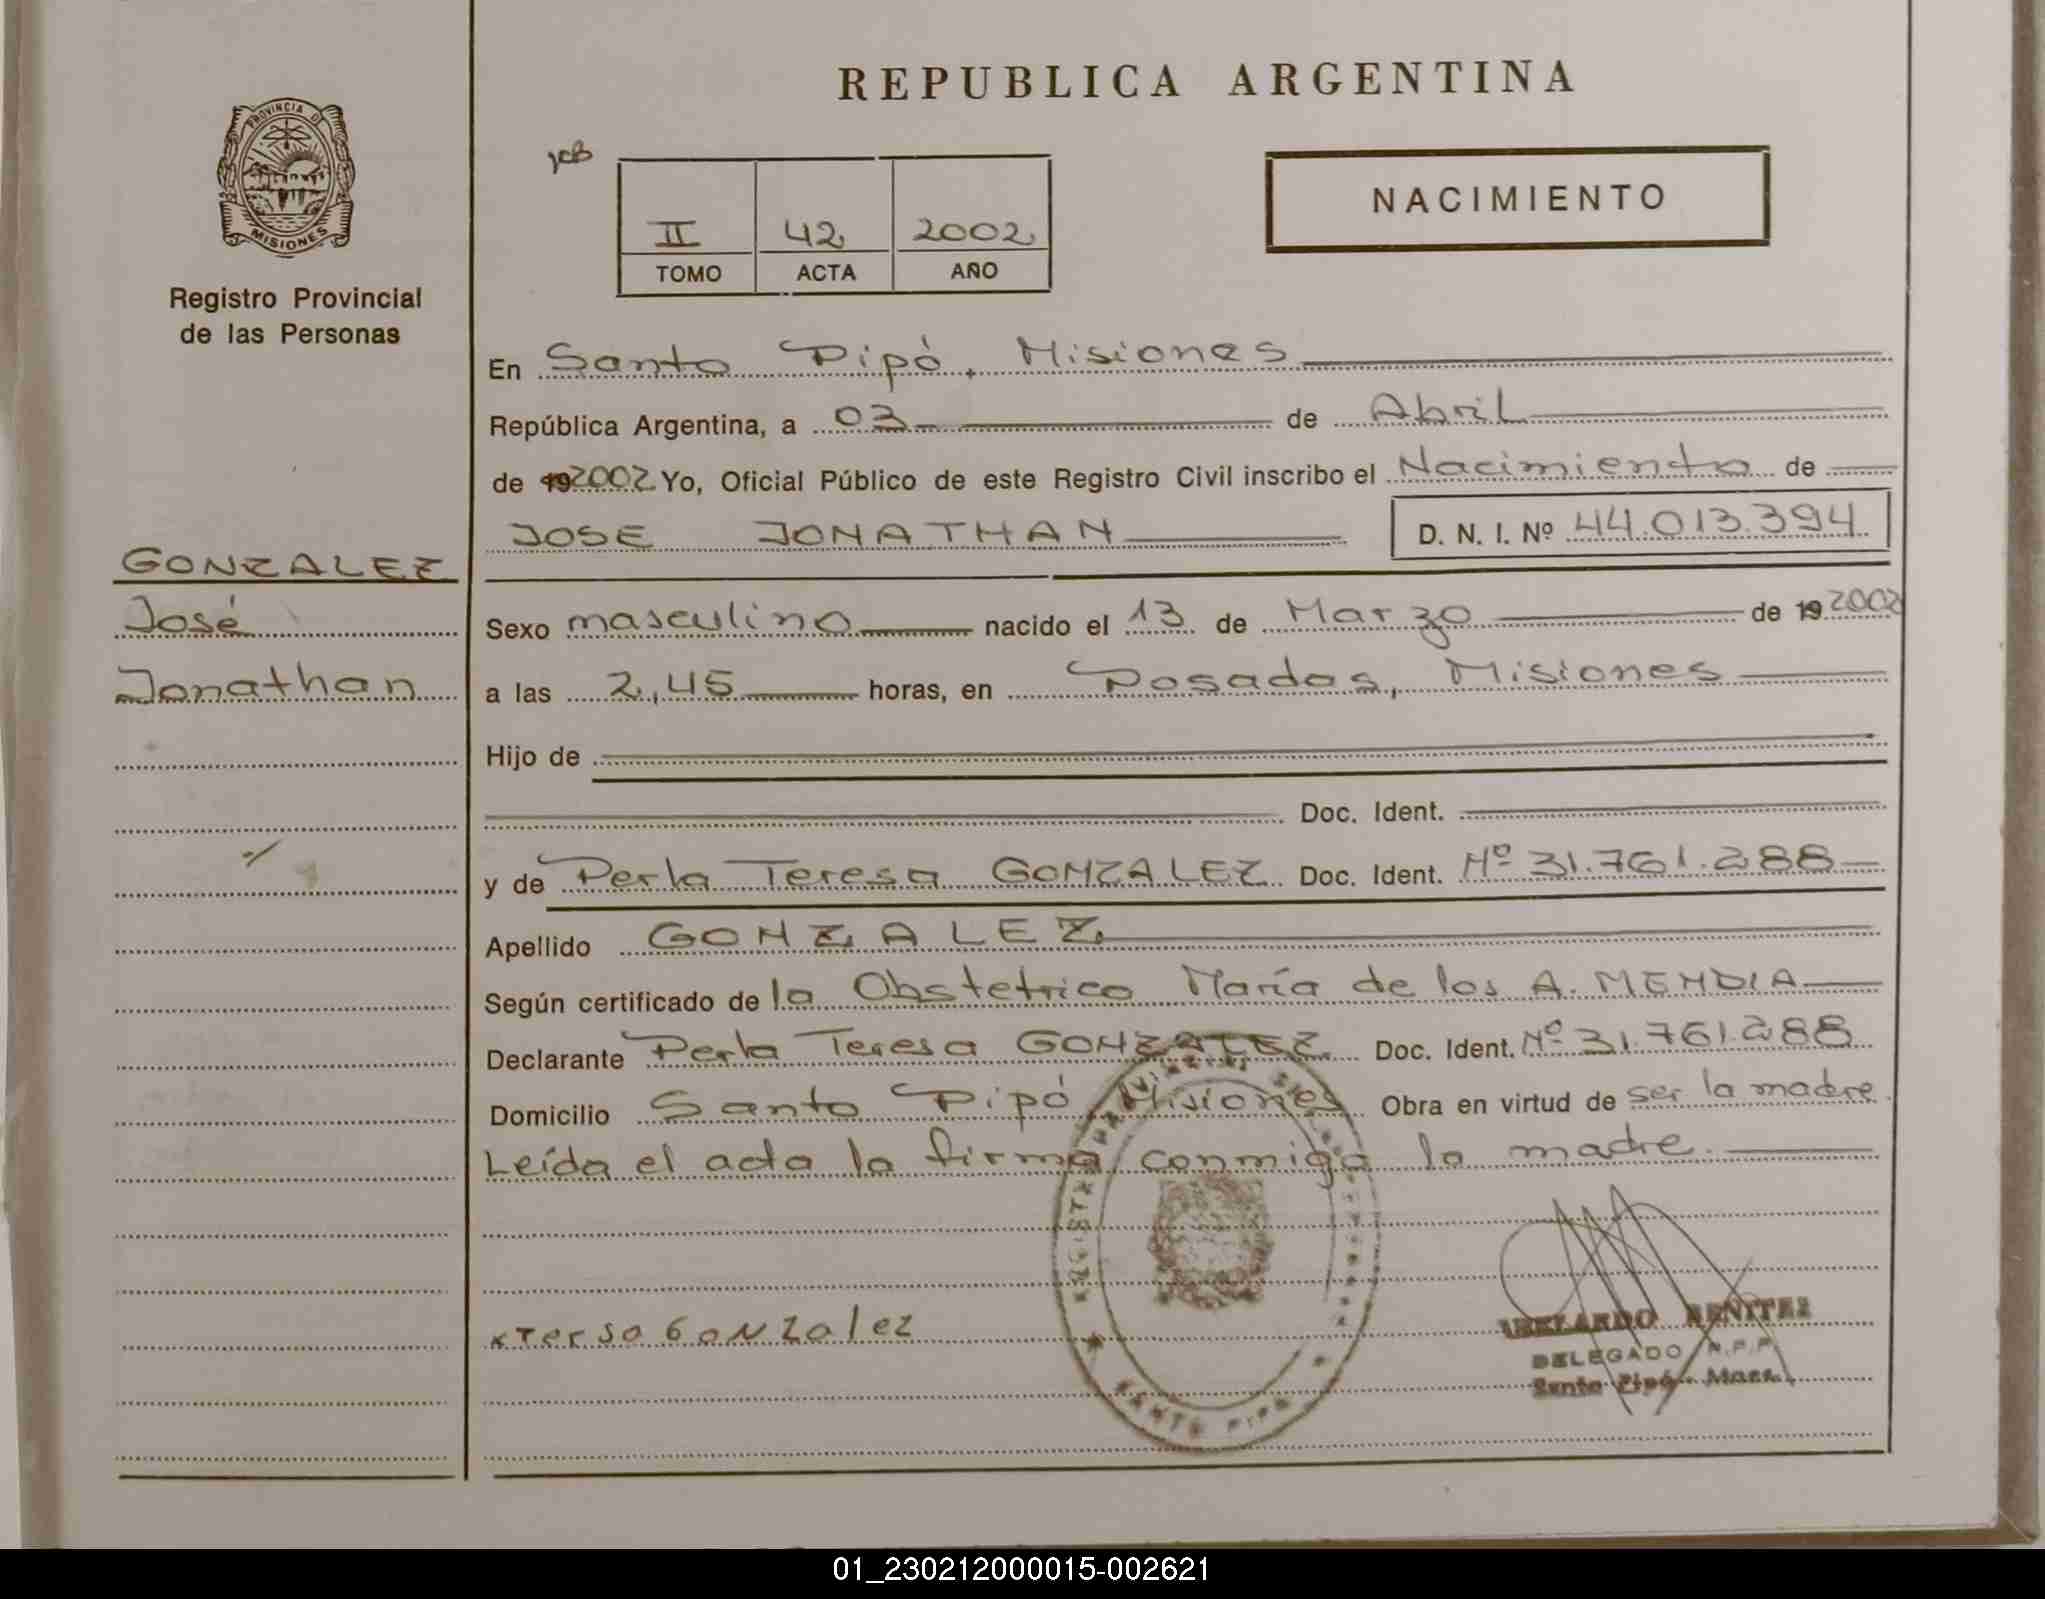 REPUBLICA ARGENTINA
PROVINCIA DE
MISIONES
Registro Provincial
de las Personas
NACIMIENTO
II 42 2002
TOMO ACTA AÑO
En Santo Pipó, Misiones
República Argentina, a 03 de Abril
de 192002 Yo, Oficial Público de este Registro Civil inscribo el Nacimiento de
JOSE JONATHAN D. N. I. Nº 44.013.394
GONZALEZ
José
Jonathan
Sexo masculino nacido el 13 de Marzo de 192002
a las 2,45 horas, en Posadas, Misiones
Hijo de
Doc. Ident.
y de Perla Teresa GONZALEZ Doc. Ident. Nº 31.761.288
Apellido GONZALEZ
Según certificado de la Obstetrica María de los A. MENDIA
Declarante Perla Teresa GONZALEZ Doc. Ident. Nº 31.761.288
Domicilio Santo Pipó Misiones Obra en virtud de ser la madre
Leída el acta la firma conmigo la madre.
xTersa Gonzalez
ABELARDO BENITEZ
DELEGADO R.P.P.
Santo Pipó - Mnes.
SANTO PIPO
01_230212000015-002621